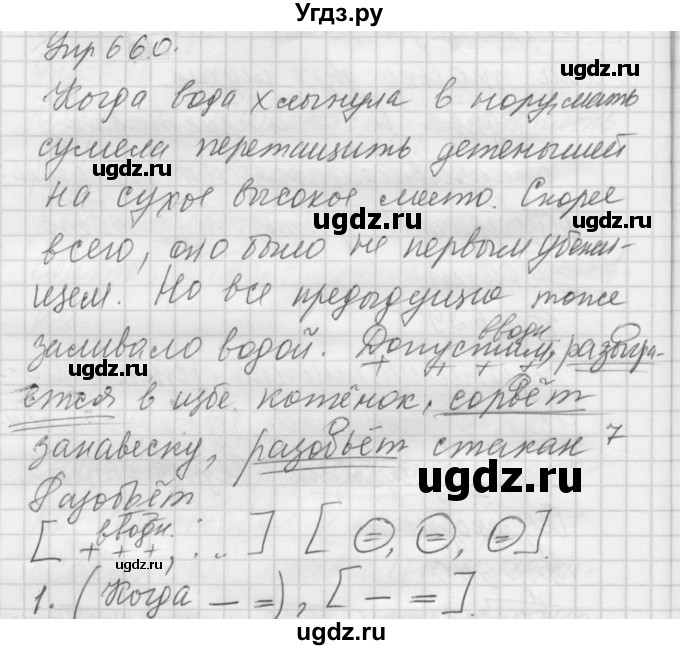 Угдз.ру
Упр 660.
Когда вода хлынула в нору, мать
сумела перетащить детенышей
на сухое высокое место. Скорее
ugdz.ru
всего, оно было не первым убежи-
ugdz.ru
щем. Но все предыдущие тоже
вводн.
заливало водой. Допустим, разыгра-
ugdz.ru
ется в избе котёнок, сорвёт
занавеску, разобьёт стакан 7
ugdz.ru
Разобьёт
вводн.
[ + + + , : .. ] [ = , = , = ].
ugdz.ru
1. (Когда — =), [ — = ].
ugdz.ru